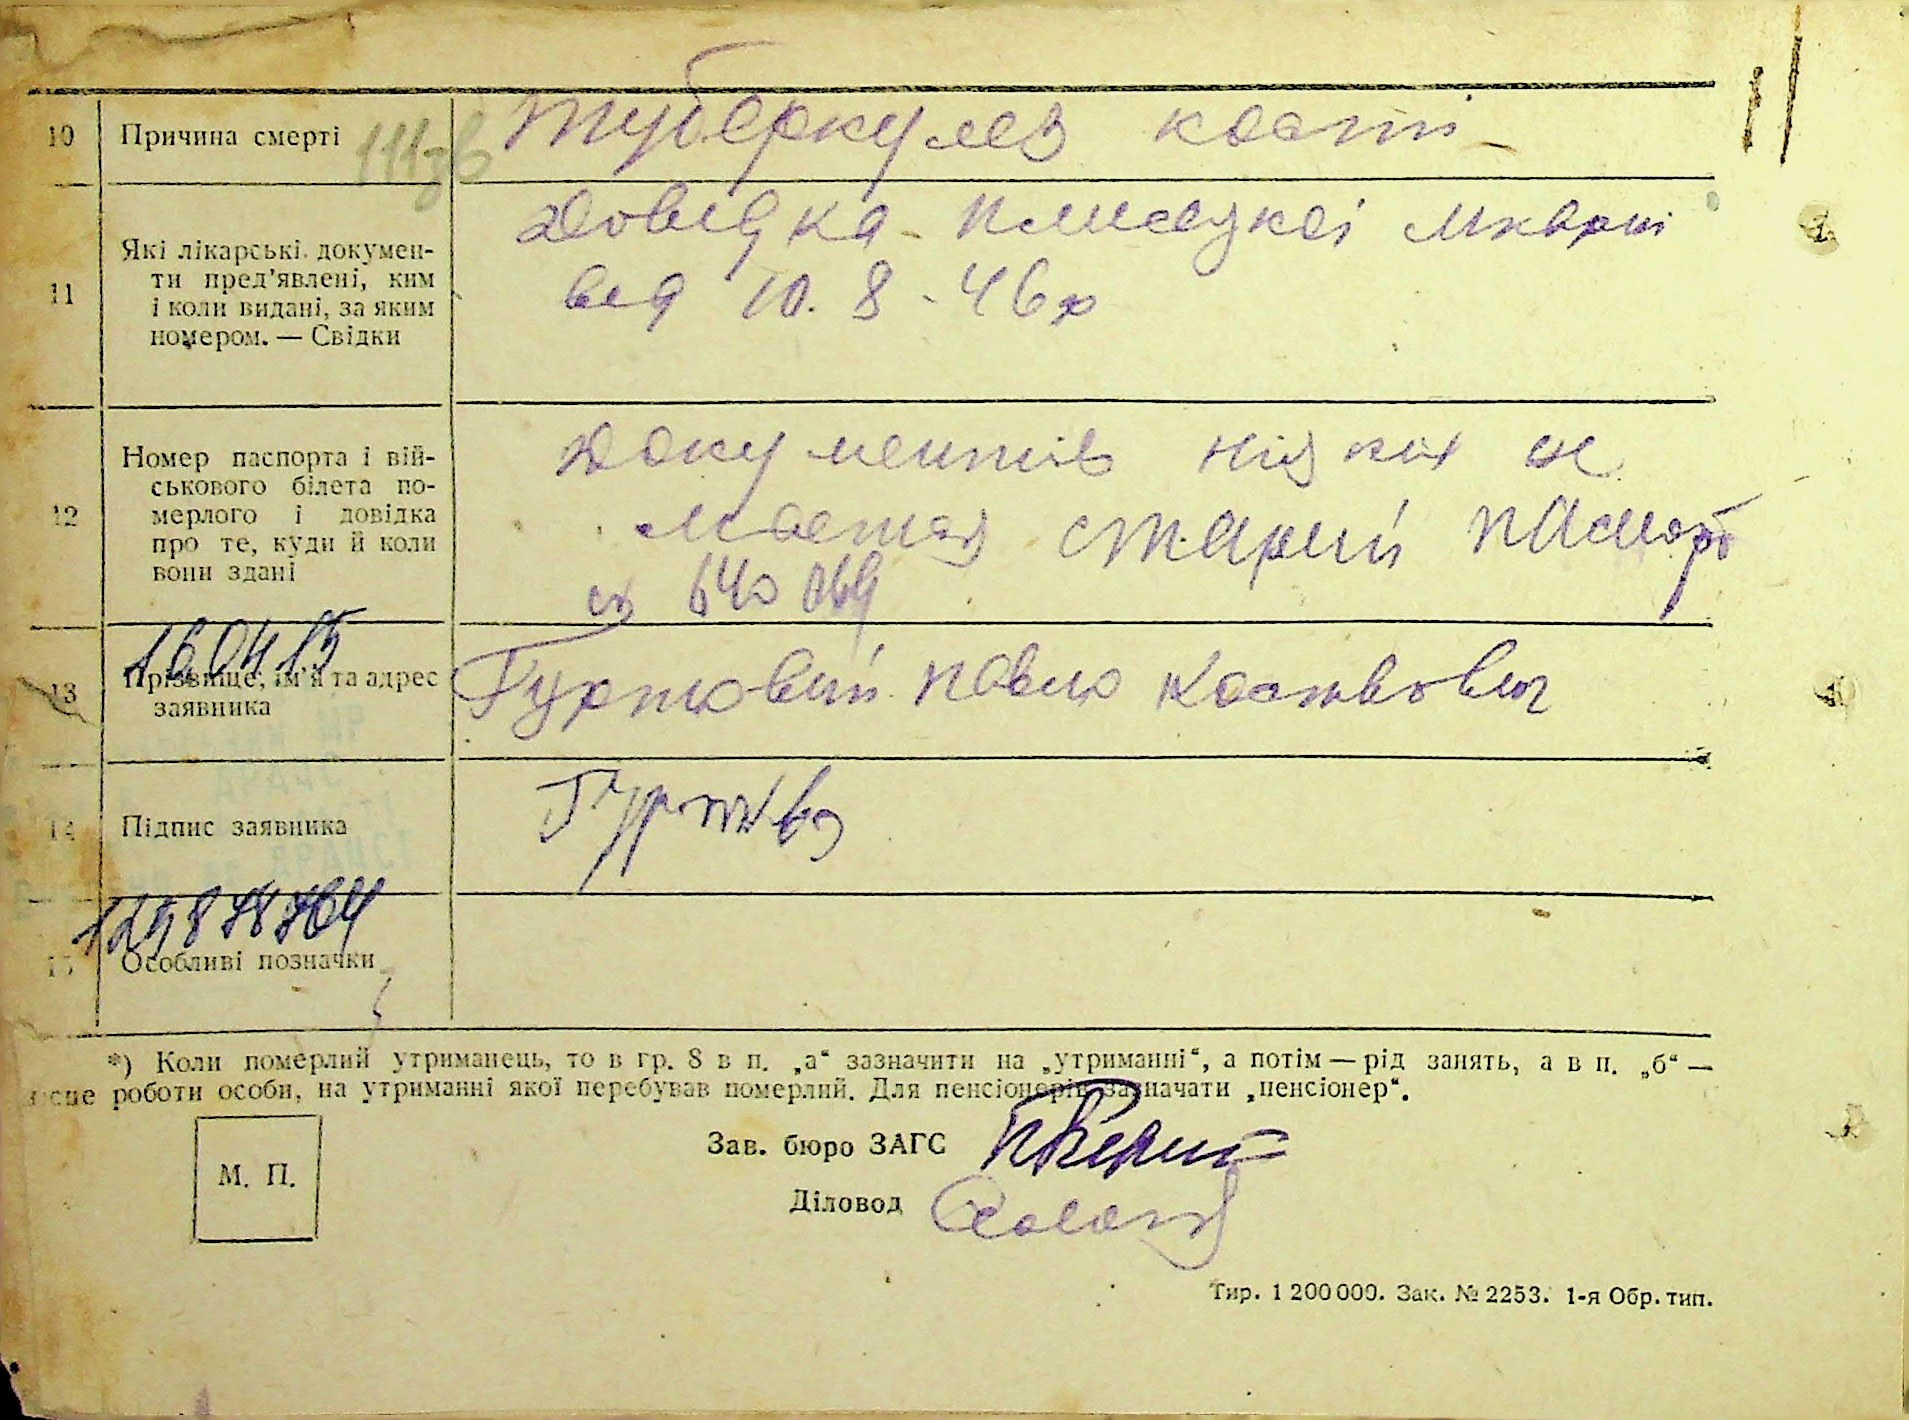 10 Причина смерті Туберкулез кости
11 Які лікарські докумен-
ти пред'явлені, ким
і коли видані, за яким
номером. — Свідки
Довідка
від 10.8-46р
12 Номер паспорта і вій-
ськового білета по-
мерлого і довідка
про те, куди й коли
вони здані
Документів ніяких не
старий паспорт
640
160415
13 Прізвище, ім'я та адрес
заявника
Павло
14 Підпис заявника
15 Особливі позначки
*) Коли померлий утриманець, то в гр. 8 в п. „а“ зазначити на „утриманні“, а потім — рід занять, а в п. „б“ —
місце роботи особи, на утриманні якої перебував померлий. Для пенсіонерів зазначати „пенсіонер“.
М. П.
Зав. бюро ЗАГС
Діловод
Тир. 1 200 000. Зак. № 2253. 1-я Обр. тип.